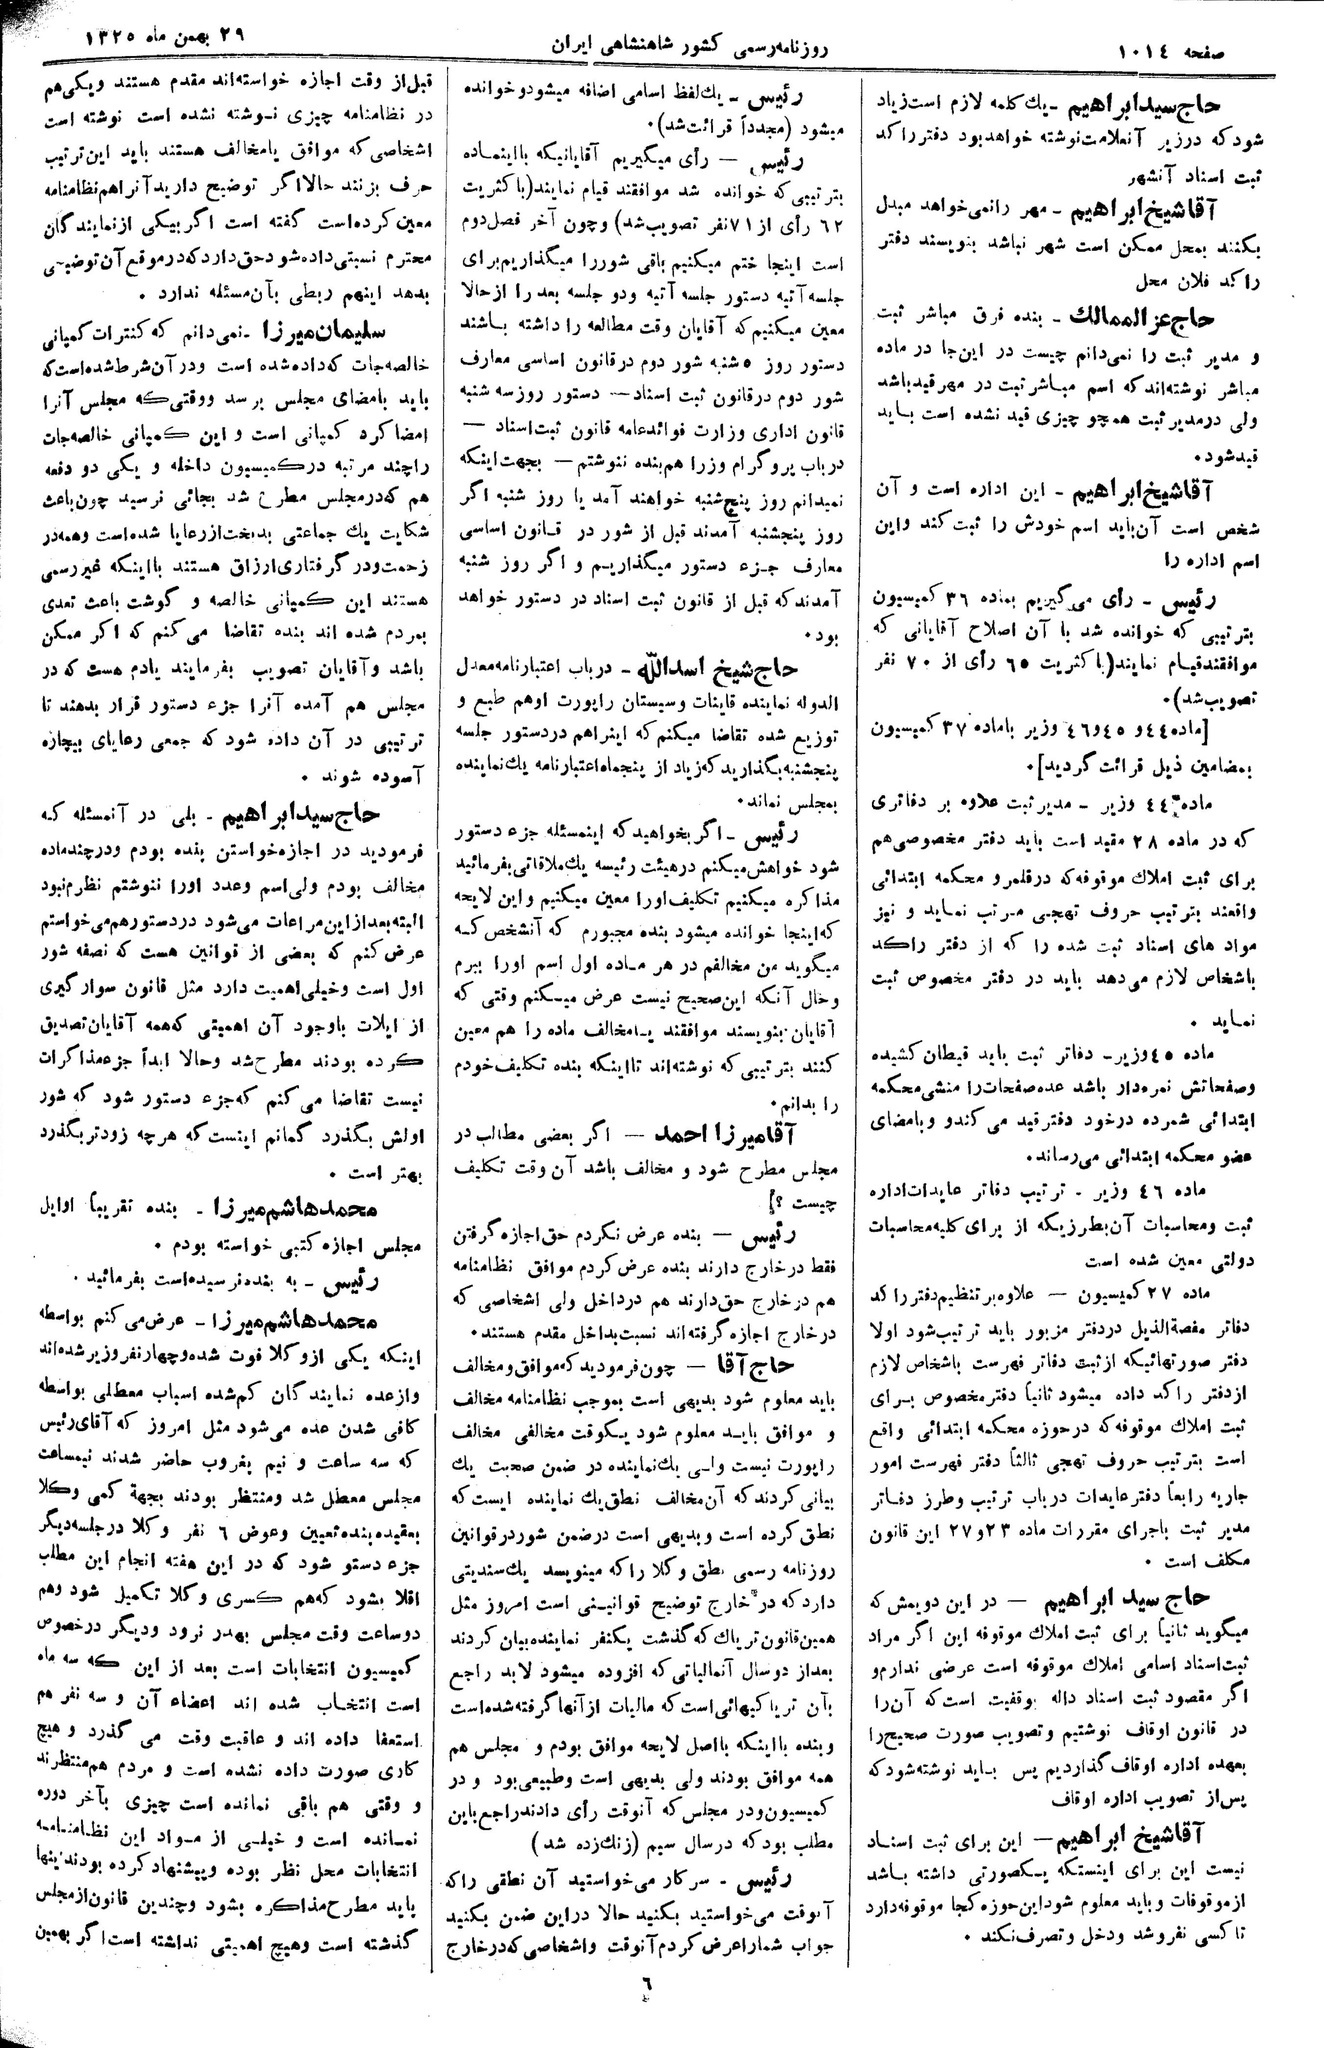 صفحه ۱۰۱۴
روزنامه رسمی کشور شاهنشاهی ایران
۲۹ بهمن ماه ۱۳۲۵
حاج سید ابراهیم - یک کلمه لازم است زیاد
شود که در زیر آن علامت نوشته خواهد بود دفتر راکد
ثبت اسناد آنشهر
آقا شیخ ابراهیم - مهر را نمی‌خواهد مبدل
بکنند بمحل ممکن است شهر نباشد بنویسند دفتر
راکد فلان محل
حاج عز الممالک - بنده فرق مباشر ثبت
و مدیر ثبت را نمی‌دانم چیست در این جا در ماده
مباشر نوشته‌اند که اسم مباشر ثبت در مهر قید باشد
ولی در مدیر ثبت همچو چیزی قید نشده است باید
قید شود.
آقا شیخ ابراهیم - این اداره است و آن
شخص است آن باید اسم خودش را ثبت کند و این
اسم اداره را
رئیس - رأی می‌گیریم بماده ۳۶ کمیسیون
بترتیبی که خوانده شد با آن اصلاح آقایانی که
موافقند قیام نمایند (باکثریت ۶۵ رأی از ۷۰ نفر
تصویب شد).
[ماده ۴۴ و ۴۵ و ۴۶ وزیر با ماده ۳۷ کمیسیون
بمضامین ذیل قرائت گردید].
ماده ۴۴ وزیر - مدیر ثبت علاوه بر دفاتری
که در ماده ۲۸ مقید است باید دفتر مخصوصی هم
برای ثبت املاک موقوفه که در قلمرو محکمه ابتدائی
واقعند بترتیب حروف تهجی مرتب نماید و نیز
مواد های اسناد ثبت شده را که از دفتر راکد
باشخاص لازم می‌دهد باید در دفتر مخصوص ثبت
نماید .
ماده ۴۵ وزیر - دفاتر ثبت باید قیطان کشیده
و صفحاتش نمره‌دار باشد عده صفحات را منشی محکمه
ابتدائی شمرده در خود دفتر قید می کند و بامضای
عضو محکمه ابتدائی می‌رساند.
ماده ۴۶ وزیر - ترتیب دفاتر عایدات اداره
ثبت و محاسبات آن بطرزیکه از برای کلیه محاسبات
دولتی معین شده است
ماده ۲۷ کمیسیون — علاوه بر تنظیم دفتر راکد
دفاتر مفصة الذیل در دفتر مزبور باید ترتیب شود اولا
دفتر صورتهائیکه از ثبت دفاتر فهرست باشخاص لازم
از دفتر راکد داده میشود ثانیاً دفتر مخصوص برای
ثبت املاک موقوفه که در حوزه محکمه ابتدائی واقع
است بترتیب حروف تهجی ثالثاً دفتر فهرست امور
جاریه رابعاً دفتر عایدات در باب ترتیب و طرز دفاتر
مدیر ثبت باجرای مقررات ماده ۲۳ و ۲۷ این قانون
مکلف است .
حاج سید ابراهیم — در این دویمش که
میگوید ثانیاً برای ثبت املاک موقوفه این اگر مراد
ثبت اسناد اسامی املاک موقوفه است عرضی ندارم و
اگر مقصود ثبت اسناد داله بوقفیت است که آن را
در قانون اوقاف نوشتیم و تصویب صورت صحیح را
بعهده اداره اوقاف گذاردیم پس باید نوشته شود که
پس از تصویب اداره اوقاف
آقا شیخ ابراهیم — این برای ثبت اسناد
نیست این برای اینستکه یکصورتی داشته باشد
از موقوفات و باید معلوم شود این حوزه کجا موقوفه دارد
تا کسی نفروشد و دخل و تصرف نکند .
رئیس - یک لفظ اسامی اضافه میشود و خوانده
میشود (مجدداً قرائت شد).
رئیس — رأی میگیریم آقایانیکه با اینماده
بترتیبی که خوانده شد موافقند قیام نمایند (باکثریت
۶۲ رأی از ۷۱ نفر تصویب شد) و چون آخر فصل دوم
است اینجا ختم میکنیم باقی شور را میگذاریم برای
جلسه آتیه دستور جلسه آتیه و دو جلسه بعد را از حالا
معین میکنیم که آقایان وقت مطالعه را داشته باشند
دستور روز ۵ شنبه شور دوم در قانون اساسی معارف
شور دوم در قانون ثبت اسناد — دستور روز سه شنبه
قانون اداری وزارت فوائد عامه قانون ثبت اسناد —
در باب پروگرام وزرا هم بنده ننوشتم — بجهت اینکه
نمیدانم روز پنجشنبه خواهند آمد یا روز شنبه اگر
روز پنجشنبه آمدند قبل از شور در قانون اساسی
معارف جزء دستور میگذاریم و اگر روز شنبه
آمدند که قبل از قانون ثبت اسناد در دستور خواهد
بود.
حاج شیخ اسدالله - در باب اعتبار نامه معدل
الدوله نماینده قاینات و سیستان راپورت او هم طبع و
توزیع شده تقاضا میکنم که اینرا هم در دستور جلسه
پنجشنبه بگذارید که زیاد از پنجماه اعتبار نامه یک نماینده
بمجلس نماند.
رئیس - اگر بخواهید که اینمسئله جزء دستور
شود خواهش میکنم در هیئت رئیسه یک ملاقاتی بفرمائید
مذاکره میکنیم تکلیف او را معین میکنیم و این لایحه
که اینجا خوانده میشود بنده مجبورم که آنشخص که
میگوید من مخالفم در هر ماده اول اسم او را ببرم
و حال آنکه این صحیح نیست عرض میکنم وقتی که
آقایان بنویسند موافقند یا مخالف ماده را هم معین
کنند بترتیبی که نوشته‌اند تا اینکه بنده تکلیف خودم
را بدانم.
آقا میرزا احمد — اگر بعضی مطالب در
مجلس مطرح شود و مخالف باشد آن وقت تکلیف
چیست ؟
رئیس — بنده عرض نکردم حق اجازه گرفتن
فقط در خارج دارند بنده عرض کردم موافق نظامنامه
هم در خارج حق دارند هم در داخل ولی اشخاصی که
در خارج اجازه گرفته‌اند نسبت بداخل مقدم هستند.
حاج آقا — چون فرمودید که موافق و مخالف
باید معلوم شود بدیهی است بموجب نظامنامه مخالف
و موافق باید معلوم شود یکوقت مخالفی مخالف
راپورت نیست ولی یک نماینده در ضمن صحبت یک
بیانی کردند که آن مخالف نطق یک نماینده ایست که
نطق کرده است و بدیهی است در ضمن شور در قوانین
روزنامه رسمی نطق وکلا را که مینویسد یک سندیتی
دارد که در خارج توضیح قوانینی است امروز مثل
همین قانون تریاک که گذشت یکنفر نماینده بیان کردند
بعد از دو سال آنمالیاتی که افزوده میشود لابد راجع
بآن تریاکیهائی است که مالیات از آنها گرفته شده است
و بنده با اینکه با اصل لایحه موافق بودم و مجلس هم
همه موافق بودند ولی بدیهی است و طبیعی بود و در
کمیسیون و در مجلس که آنوقت رأی دادند راجع باین
مطلب بود که در سال سیم (زنگ زده شد)
رئیس - سرکار می‌خواستید آن نطقی را که
آنوقت می‌خواستید بکنید حالا در این ضمن بکنید
جواب شما را عرض کردم آنوقت و اشخاصی که در خارج
قبل از وقت اجازه خواسته‌اند مقدم هستند و یکی هم
در نظامنامه چیزی نوشته نشده است نوشته است
اشخاصی که موافق یا مخالف هستند باید این ترتیب
حرف بزنند حالا اگر توضیح دارید آنرا هم نظامنامه
معین کرده است گفته است اگر بیکی از نمایندگان
محترم نسبتی داده شود حق دارد که در موقع آن توضیحی
بدهد اینهم ربطی بآن مسئله ندارد .
سلیمان میرزا - نمی‌دانم که کنترات کمپانی
خالصه جات که داده شده است و در آن شرط شده است که
باید بامضای مجلس برسد و وقتی که مجلس آنرا
امضا کرد کمپانی است و این کمپانی خالصه جات
را چند مرتبه در کمیسیون داخله و یکی دو دفعه
هم که در مجلس مطرح شد بجائی نرسید چون باعث
شکایت یک جماعتی بدبخت از رعایا شده است و همه در
زحمت و در گرفتاری ارزاق هستند با اینکه غیر رسمی
هستند این کمپانی خالصه و گوشت باعث تعدی
بمردم شده اند بنده تقاضا می‌کنم که اگر ممکن
باشد و آقایان تصویب بفرمایند یادم هست که در
مجلس هم آمده آنرا جزء دستور قرار بدهند تا
ترتیبی در آن داده شود که جمعی رعایای بیچاره
آسوده شوند .
حاج سید ابراهیم - بلی در آنمسئله که
فرمودید در اجازه خواستن بنده بودم و در چند ماده
مخالف بودم ولی اسم و عدد او را ننوشتم نظرم نبود
البته بعد از این مراعات می‌شود در دستور هم می‌خواستم
عرض کنم که بعضی از قوانین هست که نصفه شور
اول است و خیلی اهمیت دارد مثل قانون سوارگیری
از ایلات با وجود آن اهمیتی که همه آقایان تصدیق
کرده بودند مطرح شد و حالا ابداً جزء مذاکرات
نیست تقاضا می‌کنم که جزء دستور شود که شور
اولش بگذرد گمانم اینست که هرچه زودتر بگذرد
بهتر است .
محمد هاشم میرزا - بنده تقریباً اوایل
مجلس اجازه کتبی خواسته بودم .
رئیس - به بنده نرسیده است بفرمائید .
محمد هاشم میرزا - عرض می کنم بواسطه
اینکه یکی از وکلا فوت شده و چهار نفر وزیر شده‌اند
و از عده نمایندگان کم شده اسباب معطلی بواسطه
کافی شدن عده می‌شود مثل امروز که آقای رئیس
که سه ساعت و نیم بغروب حاضر شدند نیمساعت
مجلس معطل شد و منتظر بودند بجهة کمی وکلا
بعقیده بنده تعیین و عوض ۶ نفر وکلا در جلسه دیگر
جزء دستو شود که در این هفته انجام این مطلب
اقلا بشود که هم کسری وکلا تکمیل شود و هم
دو ساعت وقت مجلس بهدر نرود و دیگر در خصوص
کمیسیون انتخابات است بعد از این که سه ماه
است انتخاب شده اند اعضاء آن و سه نفر هم
استعفا داده اند و عاقبت وقت می گذرد و هیچ
کاری صورت داده نشده است و مردم هم منتظرند
و وقتی هم باقی نمانده است چیزی بآخر دوره
نمانده است و خیلی از مواد این نظامنامه
انتخابات محل نظر بوده و پیشنهاد کرده بودند اینها
باید مطرح مذاکره بشود و چندین قانون از مجلس
گذشته است و هیچ اهمیتی نداشته است اگر بهمین
۶